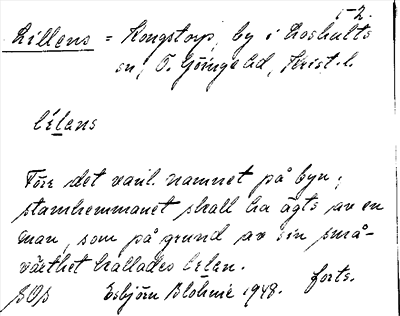 1-2.
Lillens = Kongstorp, by i Loshults
sn, Ö. Göinge hd, Krist. l.
lílens
Förr det vanl. namnet på byn;
stamhemmanet skall ha ägts av en
man, som på grund av sin små-
växthet kallades lílen.
SOs Esbjörn Blohmé 1948. forts.